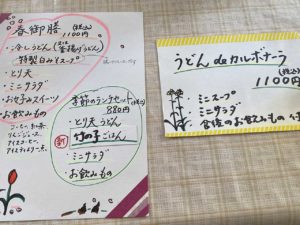 春御膳 (税込)
1100円
・冷しうどん(又は釜揚げうどん)
特製白みそスープ
・とり天
・ミニサラダ
・お好みスイーツ
・お飲みもの
コーヒー・紅茶
アイスコーヒー
アイスティー
季節のランチセット(税込)
880円
・とり天うどん
・竹の子ごはん
・ミニサラダ
・お飲みもの
うどん de カルボナーラ
(税込)
1100円
・ミニスープ
・ミニサラダ
・食後のお飲みもの 付